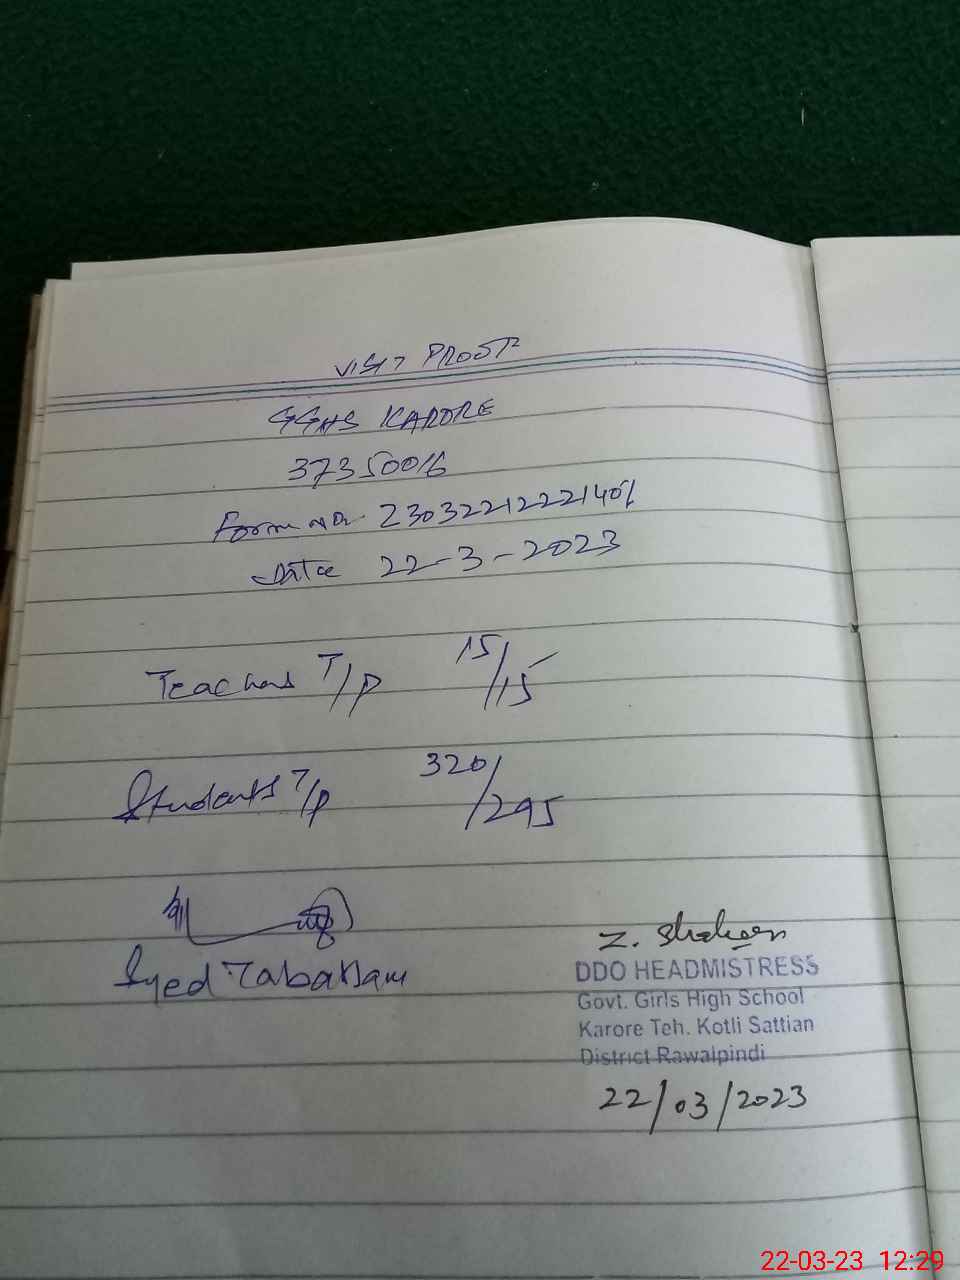 VISIT PROOF
GGHS KARORE
37350016
Form No 2303221222140%
Date 22-3-2023
Teachers T/P 15/15
Students T/P 320/295
Syed Tabassam
Z. Shaheen
DDO HEADMISTRESS
Govt. Girls High School
Karore Teh. Kotli Sattian
District Rawalpindi
22/03/2023
22-03-23 12:29